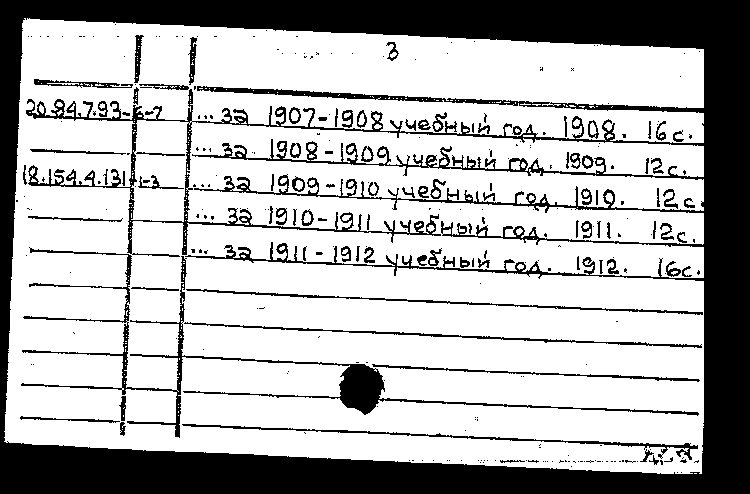 3
20.94.7.93-6-7 ... за 1907-1908 учебный год. 1908. 16с.
... за 1908-1909 учебный год. 1909. 12с.
18.154.4.131-1-3 ... за 1909-1910 учебный год. 1910. 12с.
... за 1910-1911 учебный год. 1911. 12с.
... за 1911-1912 учебный год. 1912. 16с.